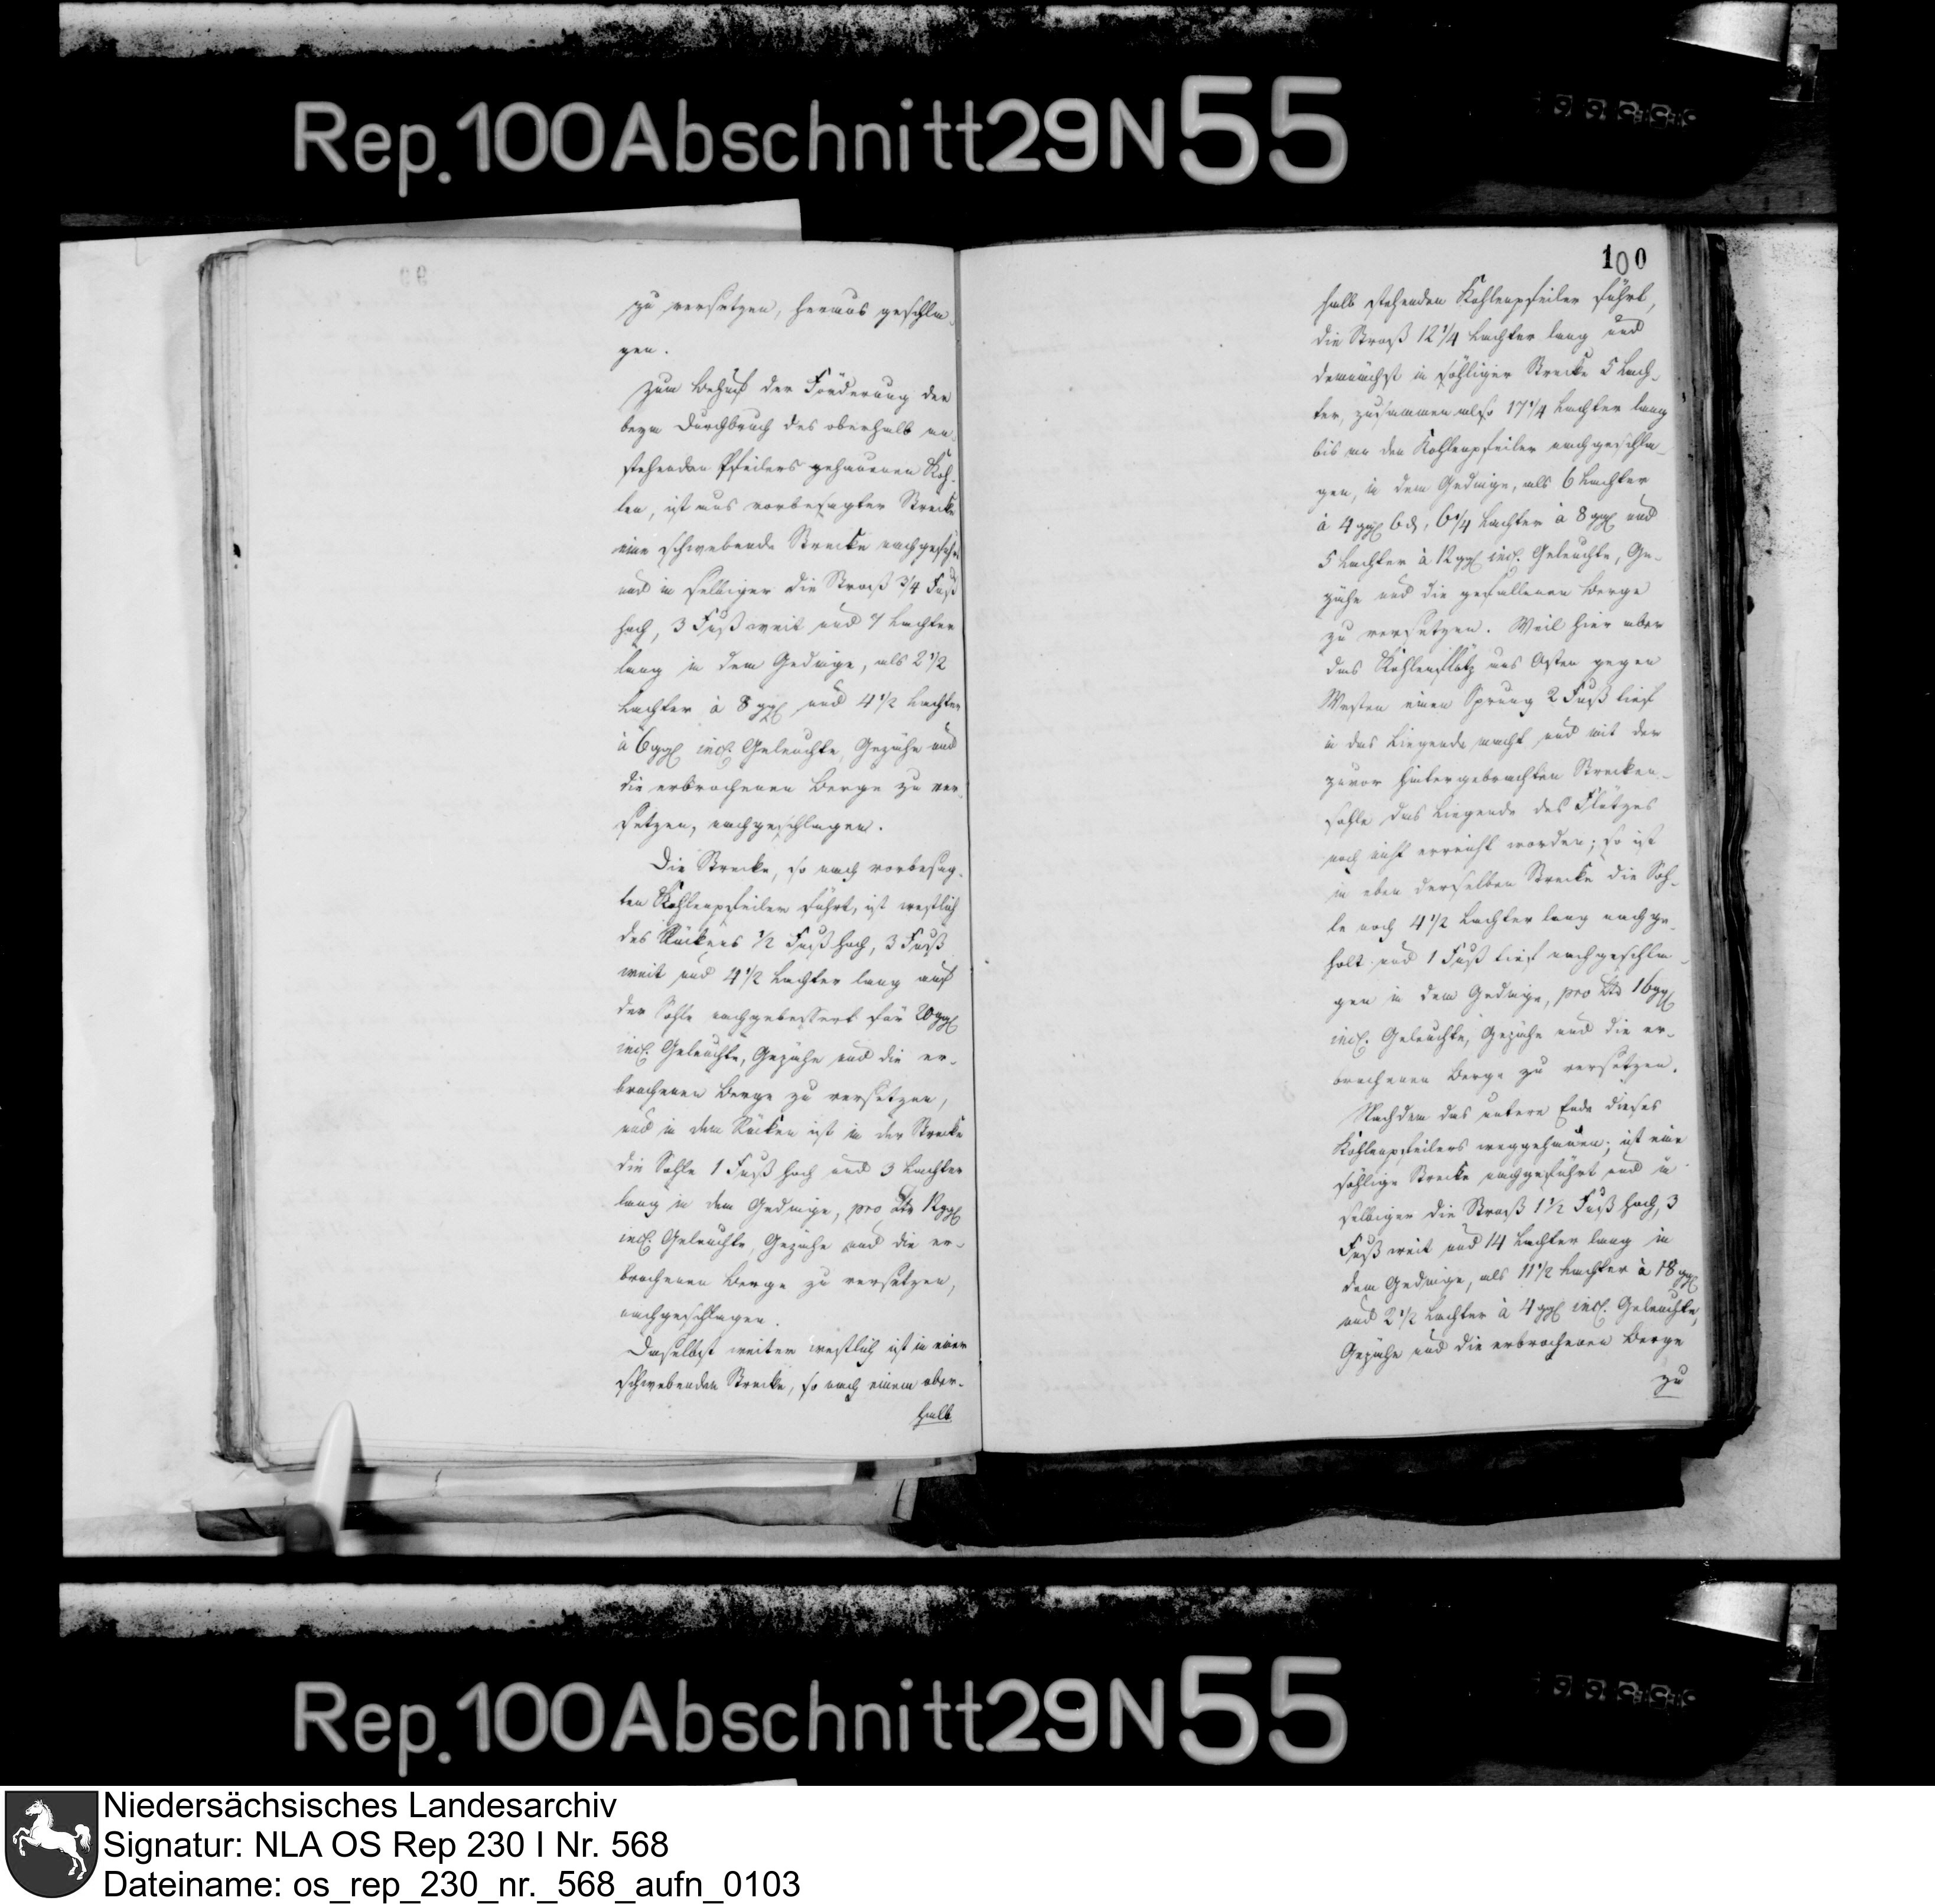 Rep. 100 Abschnitt 29 N 55
zu versetzen, heraus geschla-
gen.
Zum Behuf der Förderung der
beym Durchbruch des oberhalb an-
stehenden Pfeilers gehauenen Koh-
len, ist aus vorbesagter Strecke
eine schwebende Strecke nachgeführt
und in selbiger die Stroß 3/4 Fuß
hoch, 3 Fuß weit und 7 Lachter
lang in dem Gedinge, als 2 1/2
Lachter à 8 ggl und 4 1/2 Lachter
à 6 ggl incl. Geleuchte, Gezähe und
die erbrochenen Berge zu ver-
setzen, nachgeschlagen.
Die Strecke, so nach vorbesag-
ten Kohlenpfeiler führt, ist westlich
des Rückens 1/2 Fuß hoch, 3 Fuß
weit und 4 1/2 Lachter lang auf
der Sohle nachgebessert für 20 ggl
incl. Geleuchte, Gezähe und die er-
brochenen Berge zu versetzen,
und in dem Rücken ist in der Strecke
die Sohle 1 Fuß hoch und 3 Lachter
lang in dem Gedinge, pro Ltr 12 ggl
incl. Geleuchte, Gezähe und die er-
brochenen Berge zu versetzen,
nachgeschlagen.
Daselbst weiter westlich ist in einer
schwebenden Strecke, so nach einem ober-
halb
100
halb stehenden Kohlenpfeiler führt,
die Stroß 12 1/4 Lachter lang und
demnächst in söhliger Strecke 5 Lach-
ter, zusammen also 17 1/4 Lachter lang
bis an den Kohlenpfeiler nachgeschla-
gen, in dem Gedinge, als 6 Lachter
à 4 ggl 6 d, 6 1/4 Lachter à 8 ggl und
5 Lachter à 12 ggl incl. Geleuchte, Ge-
zähe und die gefallenen Berge
zu versetzen. Weil hier aber
das Kohlenflötz aus Osten gegen
Westen einen Sprung 2 Fuß tief
in das Liegende macht und mit der
zuvor hintergebrachten Strecken-
sohle das Liegende des Flötzes
noch nicht erreicht worden; so ist
in eben derselben Strecke die Soh-
le noch 4 1/2 Lachter lang nachge-
holt und 1 Fuß tief nachgeschla-
gen in dem Gedinge, pro Ltr 16 ggl
incl. Geleuchte, Gezähe und die er-
brochenen Berge zu versetzen.
Nachdem das untere Ende dieses
Kohlenpfeilers weggehauen; ist eine
söhlige Strecke nachgeführt und in
selbiger die Stroß 1 1/2 Fuß hoch, 3
Fuß weit und 14 Lachter lang in
dem Gedinge, als 11 1/2 Lachter à 18 ggl
und 2 1/2 Lachter à 4 ggl incl. Geleuchte,
Gezähe und die erbrochenen Berge
zu
Rep. 100 Abschnitt 29 N 55
Niedersächsisches Landesarchiv
Signatur: NLA OS Rep 230 I Nr. 568
Dateiname: os_rep_230_nr._568_aufn_0103